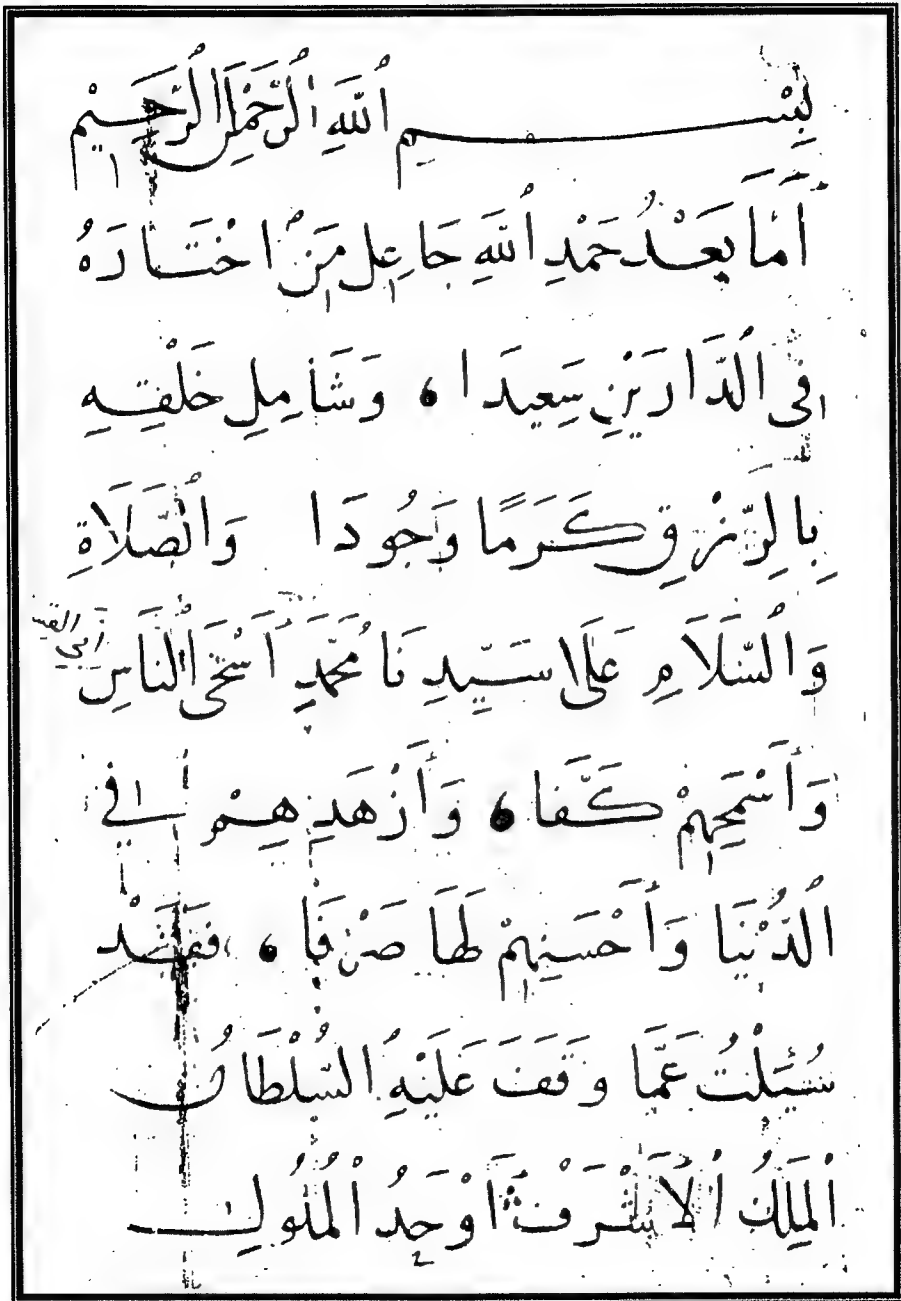 بِسْمِ اللَّهِ الرَّحْمَنِ الرَّحِيمِ
أَمَّا بَعْدُ حَمْدِ اللَّهِ جَاعِلِ مَنْ اخْتَارَهُ
فِي الدَّارَيْنِ سَعِيدَا، وَشَامِلِ خَلْقِهِ
بِالرِّزْقِ كَرَمًا وَجُودَا وَالصَّلَاةِ
وَالسَّلَامِ عَلَى سَيِّدِنَا مُحَمَّدٍ أَسْخَى النَّاسِ
وَأَسْمَحِهِمْ كَفَّا، وَأَزْهَدِهِمْ فِي
الدُّنْيَا وَأَحْسَنِهِمْ لَهَا صَرْفَا، فَقَدْ
سُئِلْتُ عَمَّا وَقَفَ عَلَيْهِ السُّلْطَانُ
الْمَلِكُ الْأَشْرَفُ أَوْحَدُ الْمُلُوكِ